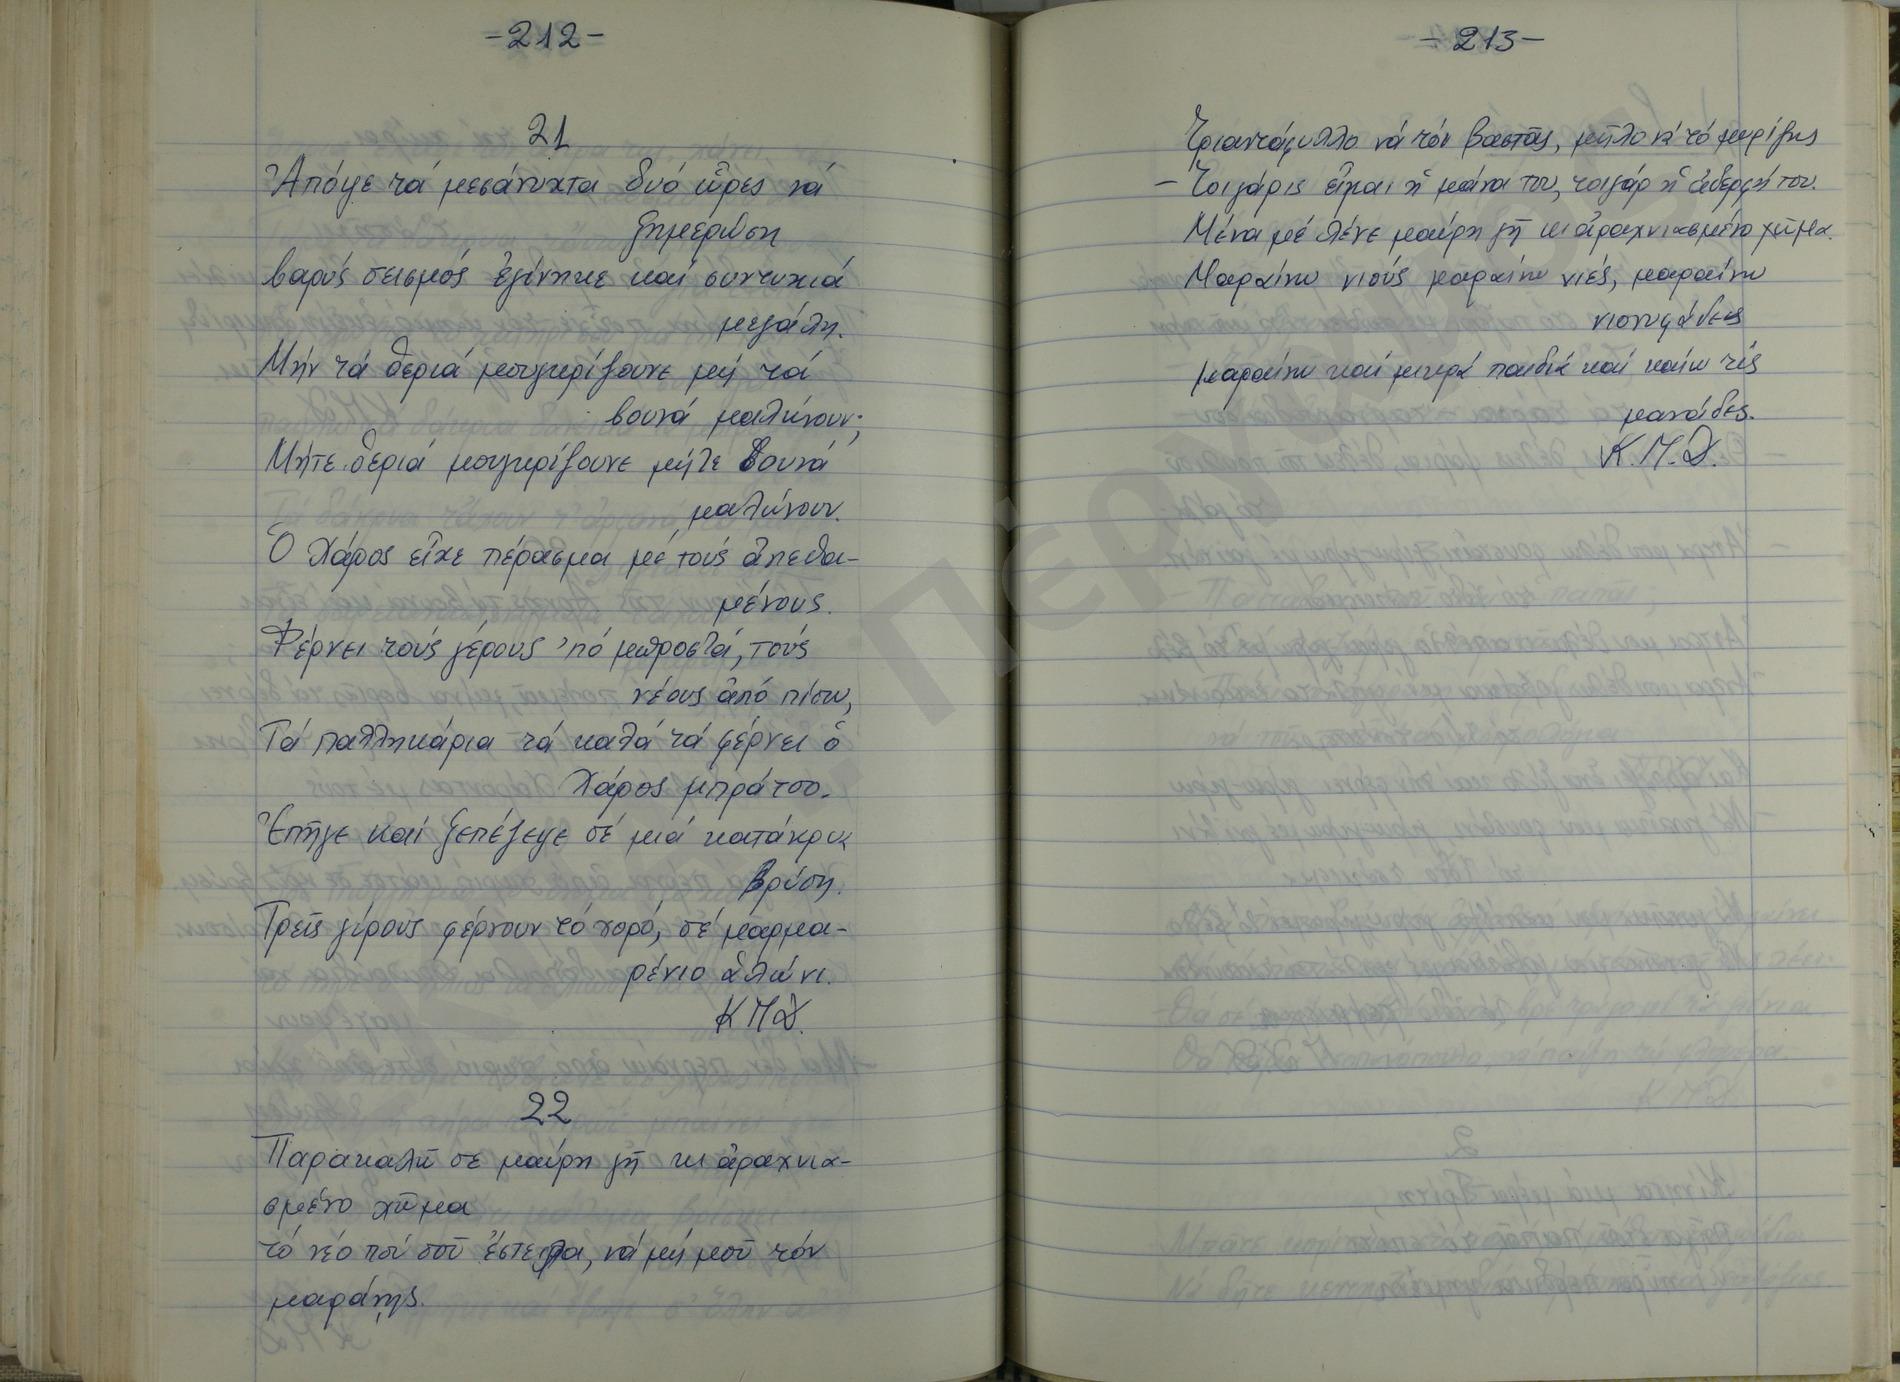 -212-
21
Ἀπόψε τά μεσάνυχτα δυό ὧρες νά
ξημερώση
βαρύς σεισμός ἐγίνηκε καί συντυχιά
μεγάλη.
Μήν τά θεριά μουγκρίζουνε μή τά
βουνά μαλώνουν;
Μήτε θεριά μουγκρίζουνε μήτε βουνά
μαλώνουν.
Ὁ Χάρος εἶχε πέρασμα μέ τούς ἀπεθα-
μένους.
Φέρνει τούς γέρους 'πό μπροστά, τούς
νέους ἀπό πίσω,
Τά παλληκάρια τά καλά τά φέρνει ὁ
Χάρος μπράτσο.
Ἐπῆγε καί ξεπέζεψε σέ μιά κατάκρυα
βρύση.
Τρεῖς γύρους φέρνουν τό χορό, σέ μάρμα-
ρένιο ἁλώνι.
Κ Π Δ.
22
Παρακαλῶ σε μαύρη γῆ κι ἀραχνια-
σμένο χῶμα
τό νέο πού σοῦ ἔστειλα, νά μή μοῦ τόν
μαράνης.
-213-
Τριαντάφυλλο νά τόν βαστᾶς, μῆλο κι τό μυρίζης
- Τσιγάρις εἶμαι ἡ μάνα του, τσιγάρ ἡ ἀδερφή του.
Μένα μέ λένε μαύρη γῆ κι ἀραχνιασμένο χῶμα.
Μαραίνω νιούς μαραίνω νιές, μαραίνω
νιονυφάδες
μαραίνω καί μικρά παιδιά καί καίω τίς
μανάδες.
Κ. Π. Δ.